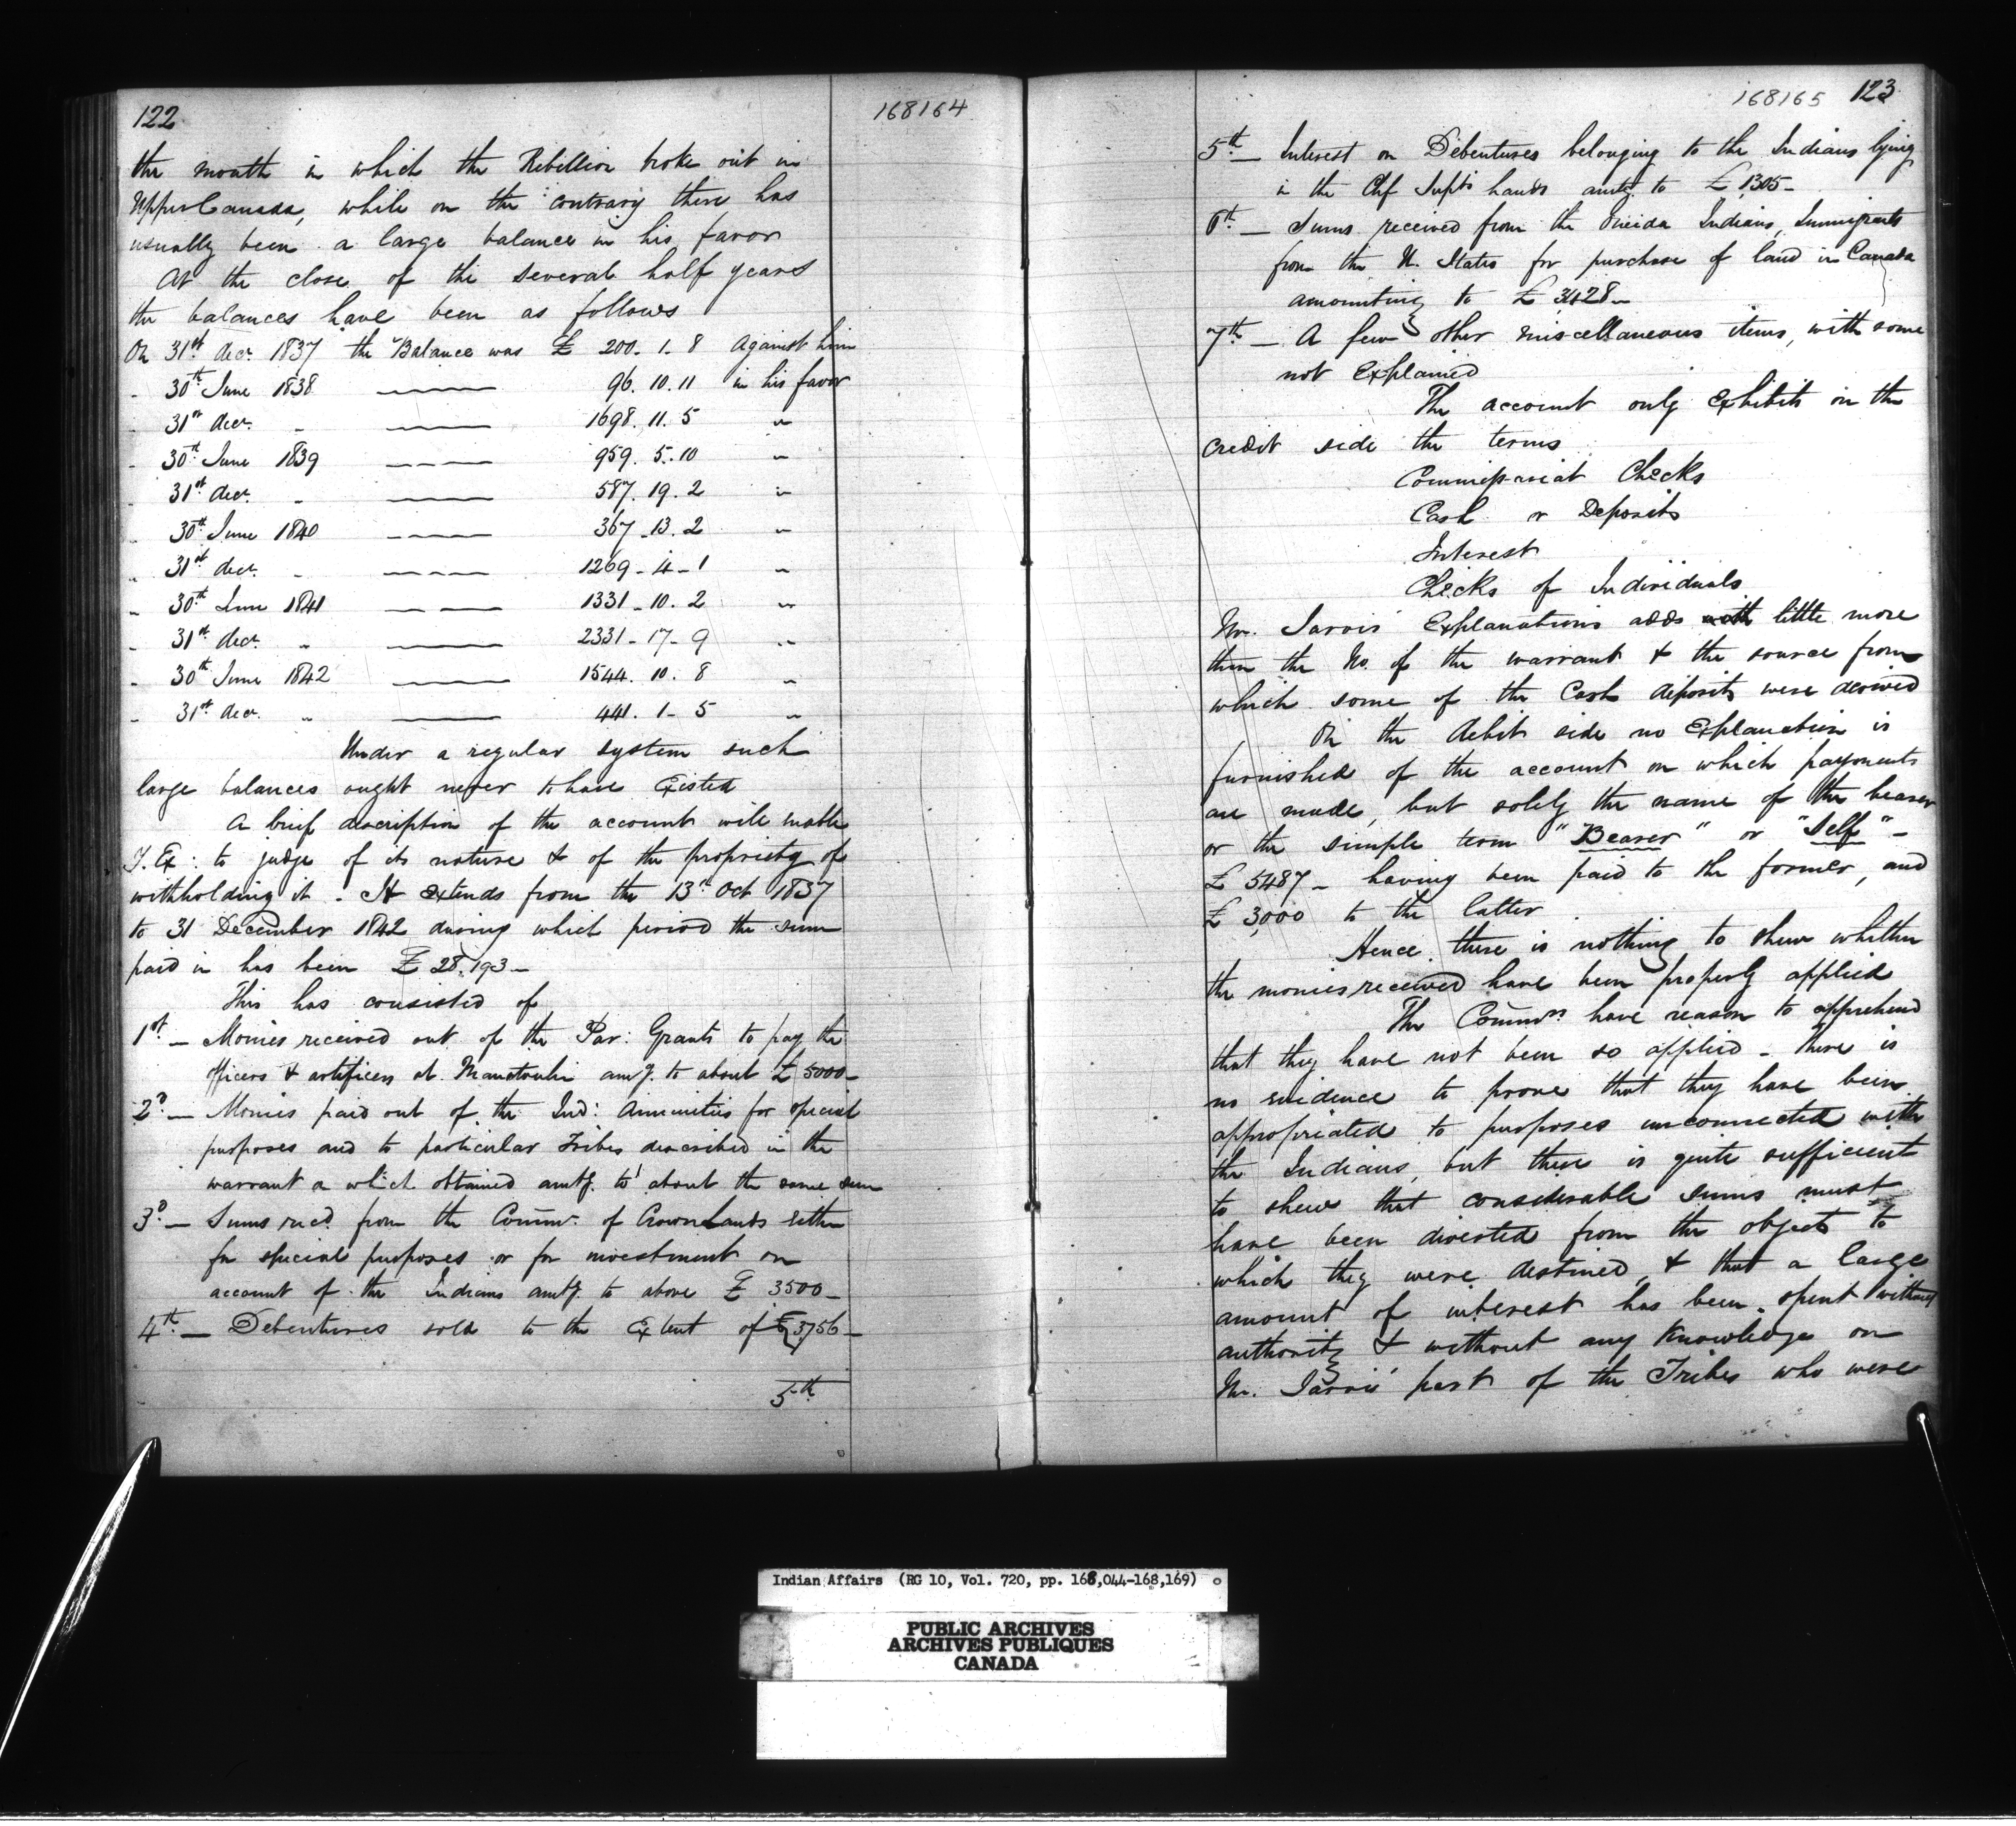 122
168164
the month in which the Rebellion broke out in
Upper Canada, while on the contrary there has
usually been a large balance in his favor
At the close of the several half years
the balances have been as follows
On 31st decr. 1837 the Balance was £ 200. 1. 8 Against him
" 30th June 1838 — 96. 10. 11 in his favor
" 31st decr. " — 1698. 11. 5 "
" 30th June 1839 — 959. 5. 10 "
" 31st decr. " — 587. 19. 2 "
" 30th June 1840 — 367. 13. 2 "
" 31st decr. " — 1269 - 4 - 1 "
" 30th June 1841 — 1331 - 10. 2 "
" 31st decr. " — 2331 - 17 - 9 "
" 30th June 1842 — 1544. 10. 8 "
" 31st decr. " — 441. 1 - 5 "
Under a regular system such
large balances ought never to have Existed
A brief description of the account will enable
Y. Ex: to judge of its nature & of the propriety of
withholding it. It extends from the 13th Oct 1837
to 31 December 1842 during which period the sum
paid in has been £ 28,193 -
This has consisted of
1st. - Monies received out of the Par: Grants to pay the
officers & artificers at Manetoulin amtg. to about £ 5000 -
2d. - Monies paid out of the Ind: Annuities for special
purposes and to particular Tribes described in the
warrant a which obtained amtg. to about the same sum
3d. - Sums recd. from the Commr. of Crown Lands either
for special purposes or for investment on
account of the Indians amtg. to above £ 3500 -
4th. - Debentures sold to the Extent of £ 3756 -
5th
168165 123
5th - Interest on Debentures belonging to the Indians lying
in the Chf Supt's hands amtg to £ 1305 -
6th. - Sums received from the Oneida Indians, Immigrants
from the U. States for purchase of land in Canada
amounting to £ 3428 -
7th - A few other miscellaneous items, with some
not Explained
The account only Exhibits on the
credit side the terms
Commissariat Checks
Cash or Deposits
Interest
Checks of Individuals
Mr. Jarvis' Explanations adds with little more
than the No. of the warrant & the source from
which some of the Cash deposits were derived
On the debit side no Explanation is
furnished of the account on which payments
are made, but solely the name of the bearer
or the simple term "Bearer" or "Self" -
£ 5487 - having been paid to the former, and
£ 3,000 to the latter
Hence there is nothing to shew whether
the monies received have been properly applied
The Commrs. have reason to apprehend
that they have not been so applied - there is
no evidence to prove that they have been
appropriated to purposes unconnected with
the Indians, but there is quite sufficient
to shew that considerable sums must
have been diverted from the objects to
which they were destined, & that a large
amount of interest has been spent without
authority & without any Knowledge on
Mr. Jarvis' part of the Tribes who were
Indian Affairs (RG 10, Vol. 720, pp. 168,044-168,169)
PUBLIC ARCHIVES
ARCHIVES PUBLIQUES
CANADA